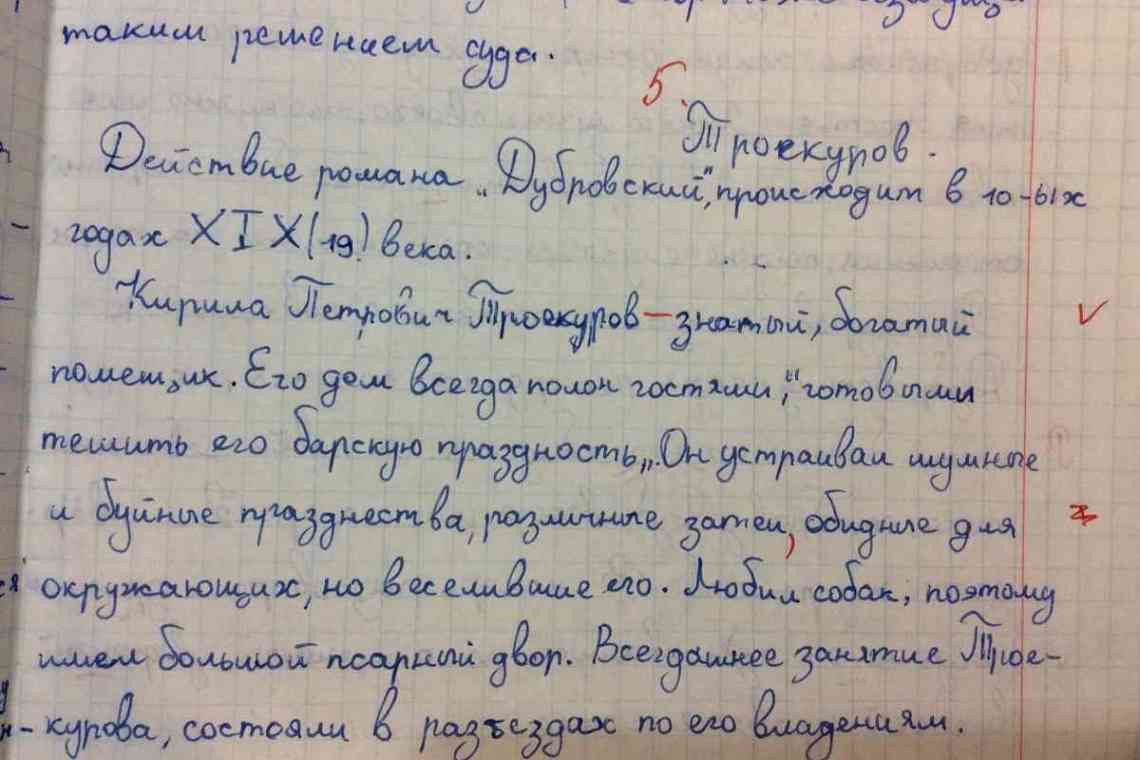 таким решением суда.
5.
Троекуров.
Действие романа „Дубровский", происходит в 10-ых
годах XIX(19) века.
Кирила Петрович Троекуров — знатый, богатий
помещик. Его дом всегда полон гостями, "готовыми
тешить его барскую праздность„. Он устраивал шумные
и буйные празднества, различные затеи, обидные для
окружающих, но веселившие его. Любил собак, поэтому
имел большой псарный двор. Всегдашнее занятие Трое-
курова, состояли в разъездах по его владениям.